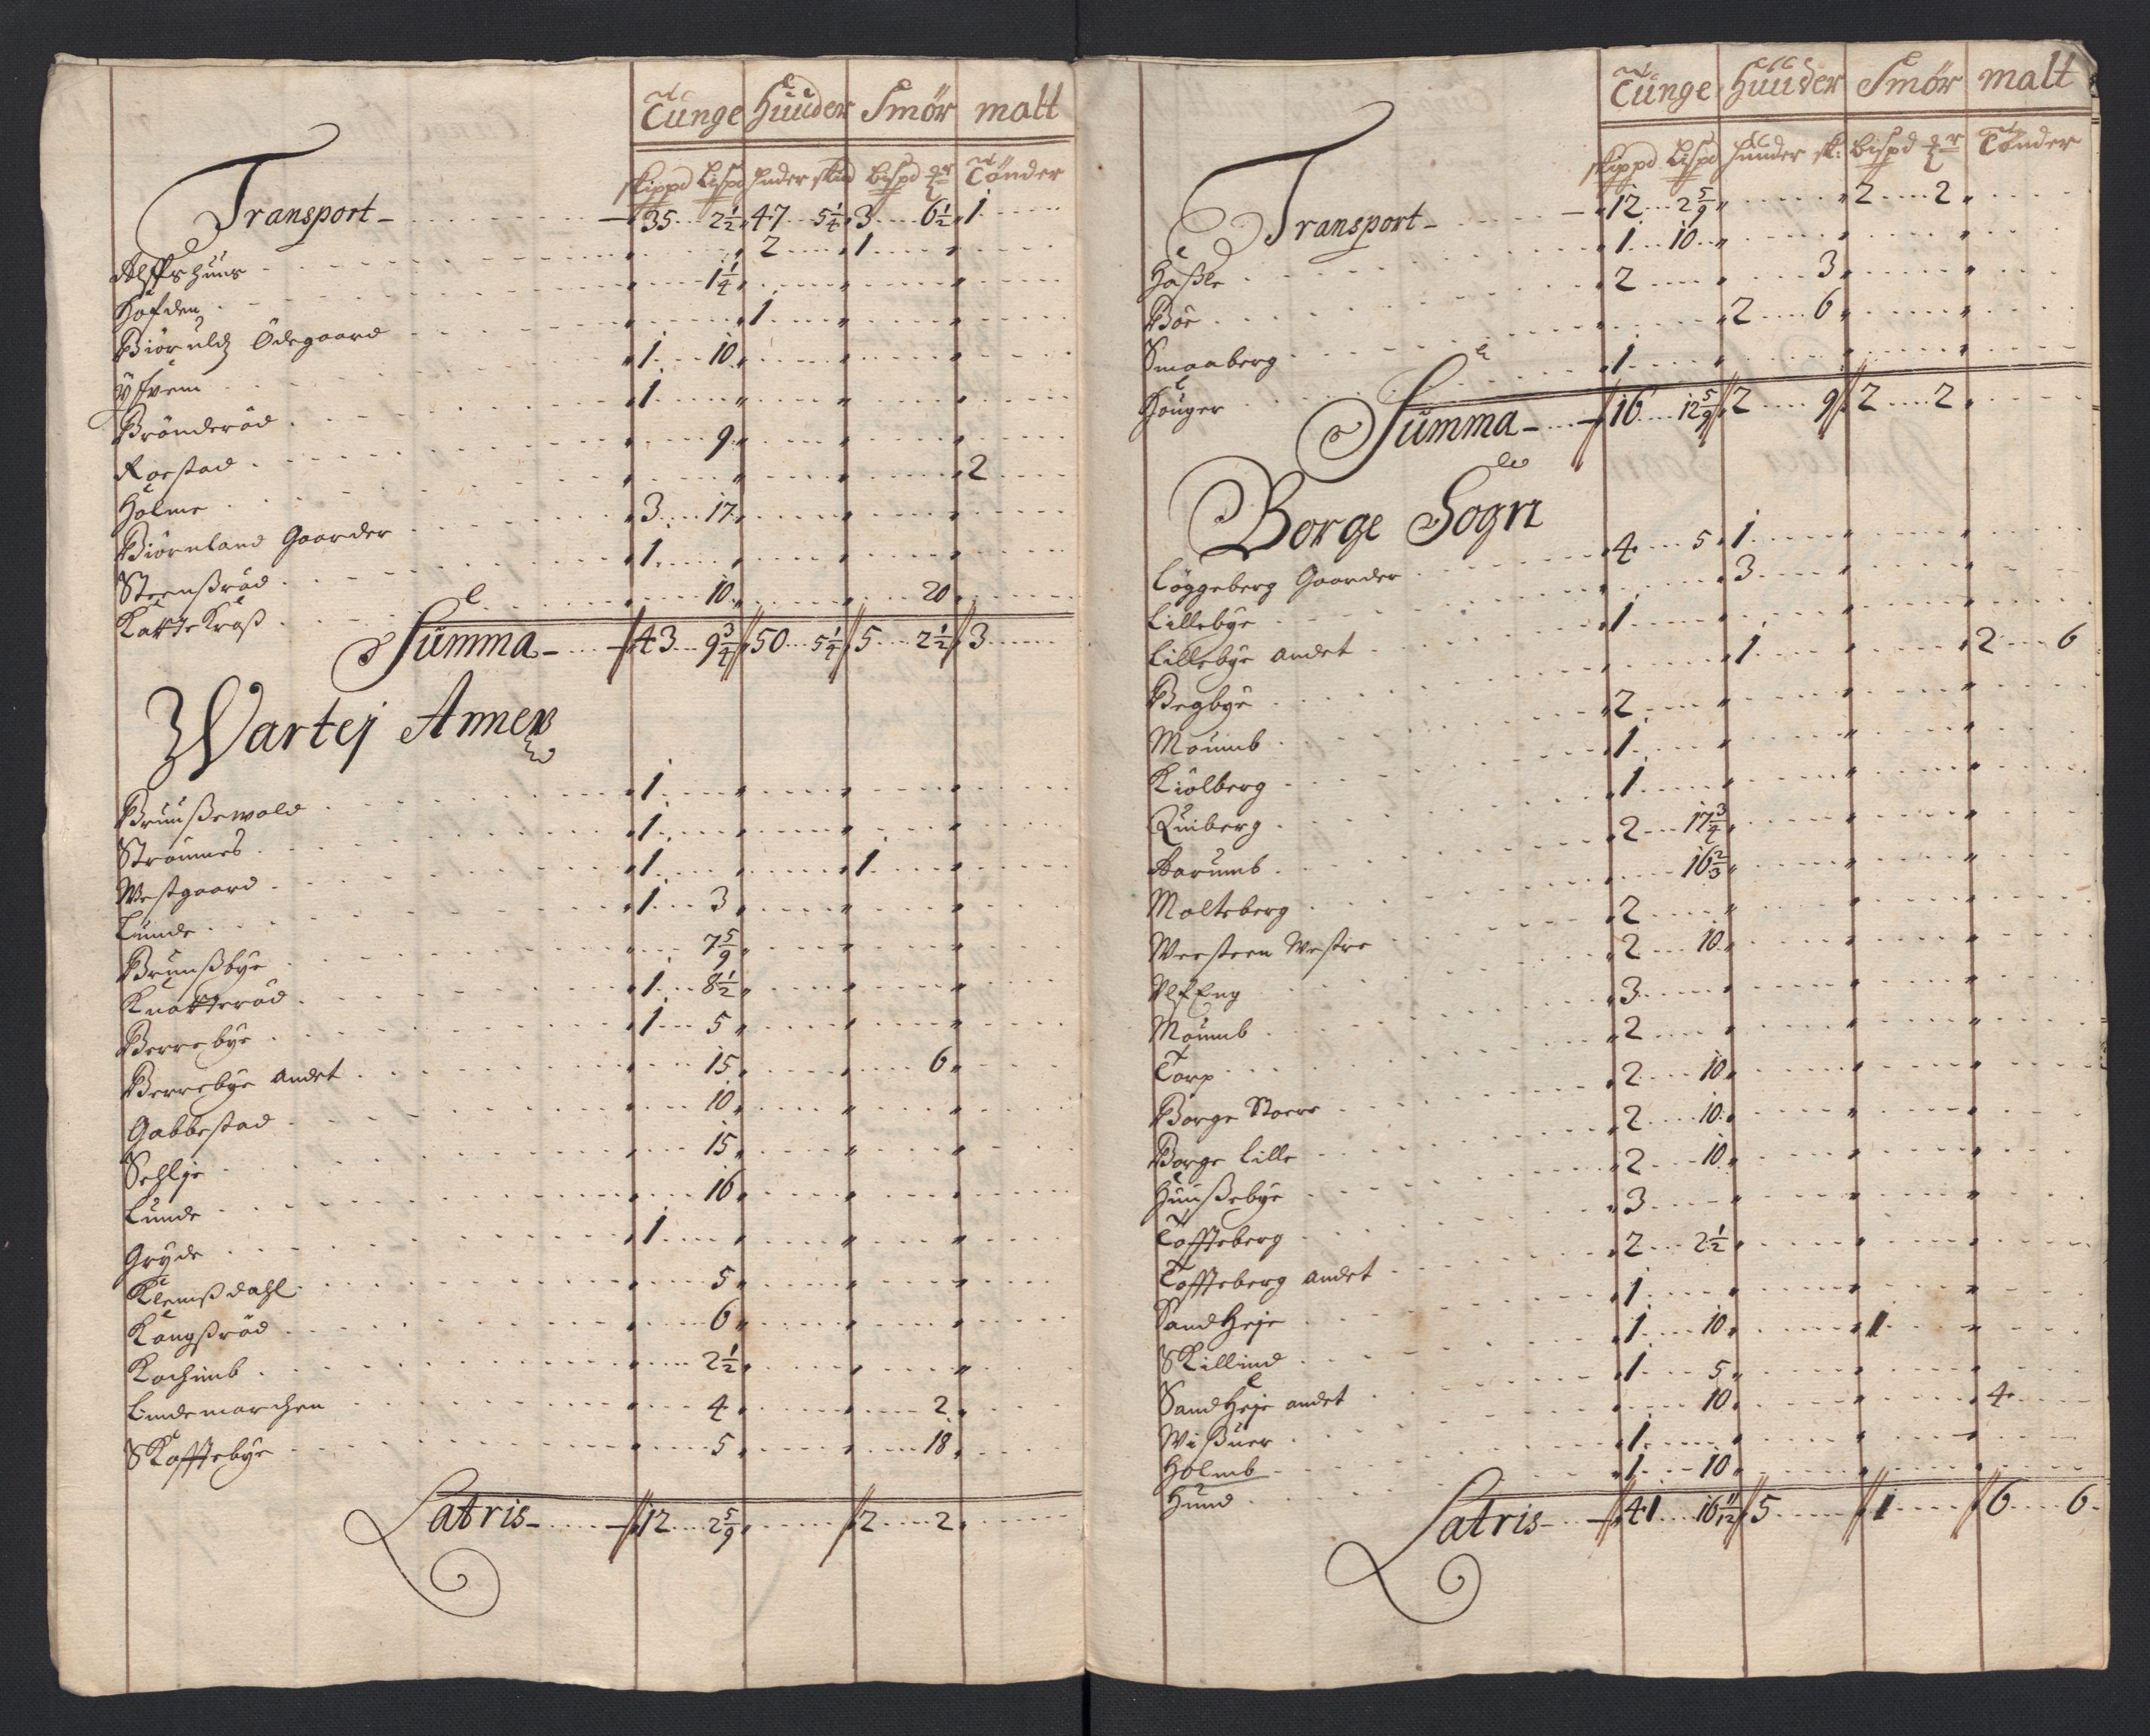 Tünge Huuder Smör malt
skippd Lispd huder skind Bispd ℔r Tönder
Transport - 35 2½ 47 5¼ 3 6½ 1
Alffshuus 2 1
Hofden 1¼
Biörulds Ödegaard 1
Ysvem 1 10
Brönderöd 1
Roestad 9
Holme 2
Biörnland Gaarder 3 17
Steenßröd 1
KatteKraß 10 20
Summa - 43 9¾ 50 5¼ 5 2½ 3
Wartej Annex
Bruußewald 1
Strömnes 1
Westgaard 1 1
Lunde 1 3
Brunßbye 7 5/9
Knatteröd 1 8½
Berrebye 1 5
Berrebye andet 15 6
Gabbestad 10
Sehlje 15
Lunde 16
Gryde 1
Klemßdahl 5
Kongßröd 6
Kochimb 2½
Lindemarchen 4 2
Skofftebye 5 18
Latris - 12 2 5/9 2 2
Tünge Huuder Smör malt
skippd Lispd Hunder sk: Bispd ℔r Tönder
Transport - 12 2 5/9 2 2
Haßle 1 10
Böe 2 3
Smaaberg 2 6
Houger 1
Summa - 16 12 5/9 2 9 2 2
Borge Sogn
Löggeberg Gaarder 4 5 1
Lillebye 3
Lillebye andet 1
Begbye 1 2 6
Moumb 2
Kiölberg 1
Quiberg 1
Harumb 2 17¾
Molteberg 16⅔
Weesteen Westre 2
Ulfeng 2 10
Moumb 3
Torp 2
Borge Stoere 2 10
Borge Lille 2 10
Huußebye 2 10
Toffteberg 3
Toffteberg andet 2 2½
SandHeje 1
Skillind 1 10 1
SandHeje andet 1 5
Wißuer 10 4
Holmb 1
Hund 1 10
Latris - 41 16 11/12 5 1 6 6